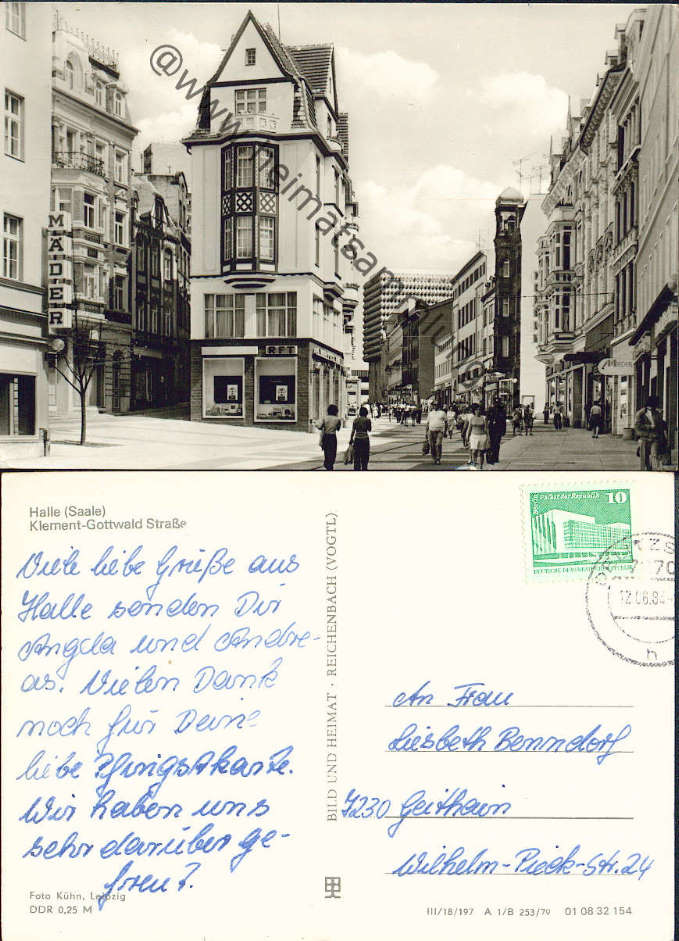 @www.heimatsam
MÄDER
RFT
Halle (Saale)
Klement-Gottwald Straße
Viele liebe Grüße aus
Halle senden Dir
Angela und Andre-
as. Vielen Dank
noch für Deine
liebe Pfingstkarte.
Wir haben uns
sehr darüber ge-
freut.
Foto Kühn, Leipzig
DDR 0,25 M
BILD UND HEIMAT · REICHENBACH (VOGTL)
Palast der Republik 10
DEUTSCHE DEMOKRATISCHE REPUBLIK
70
12.06.84
h
An Frau
Liesbeth Benndorf
7230 Geithain
Wilhelm-Pieck-Str. 24
III/18/197 A 1/B 253/79 01 08 32 154